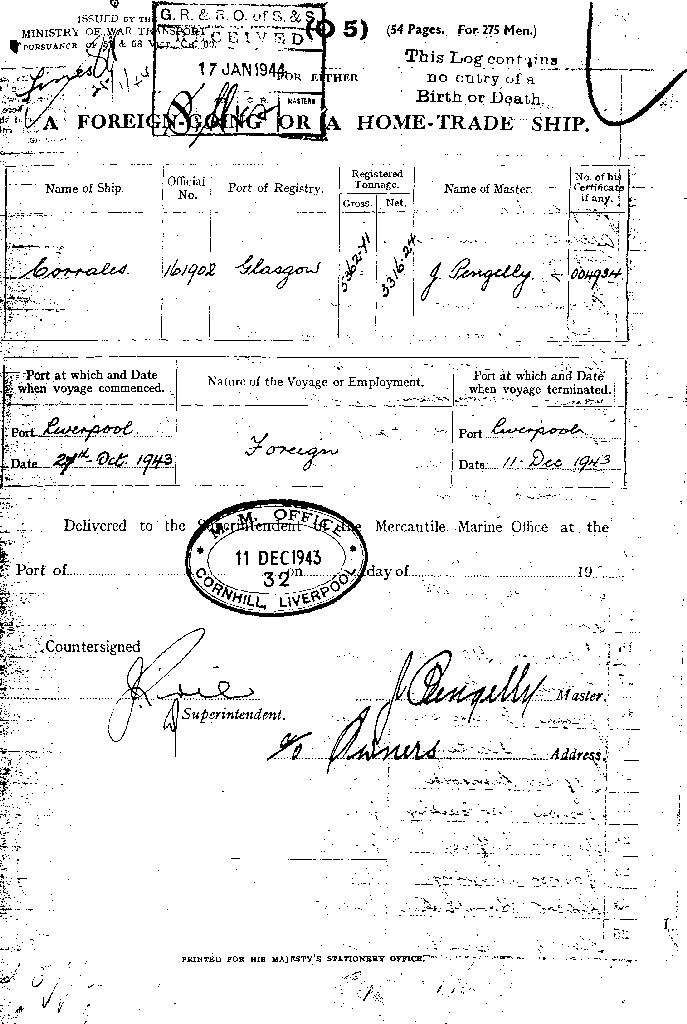 ISSUED BY THE
MINISTRY OF WAR TRANSPORT
PURSUANCE OF 57 & 58 VICT., CH. 60.
G. R. & R. O. of S. & S.
RECEIVED
17 JAN 1944
MASTERS
(O 5)
(54 Pages. For 275 Men.)
This Log contains
no entry of a
Birth or Death.
FOR EITHER
A FOREIGN-GOING OR A HOME-TRADE SHIP.
Name of Ship.
Official No.
Port of Registry.
Registered Tonnage.
Gross.
Net.
Name of Master.
No. of his Certificate if any.
Corrales.
161902
Glasgow
5362.71
3316.24
J Pengelly.
004934
Port at which and Date when voyage commenced.
Nature of the Voyage or Employment.
Port at which and Date when voyage terminated.
Port Liverpool
Date 27th Oct 1943
Foreign
Port Liverpool
Date 11. Dec 1943
Delivered to the Superintendent of the Mercantile Marine Office at the
Port of on day of 19
M. M. OFFICE
11 DEC 1943
32
CORNHILL, LIVERPOOL
Countersigned
Superintendent.
J. Pengelly Master.
c/o Owners Address.
PRINTED FOR HIS MAJESTY'S STATIONERY OFFICE.